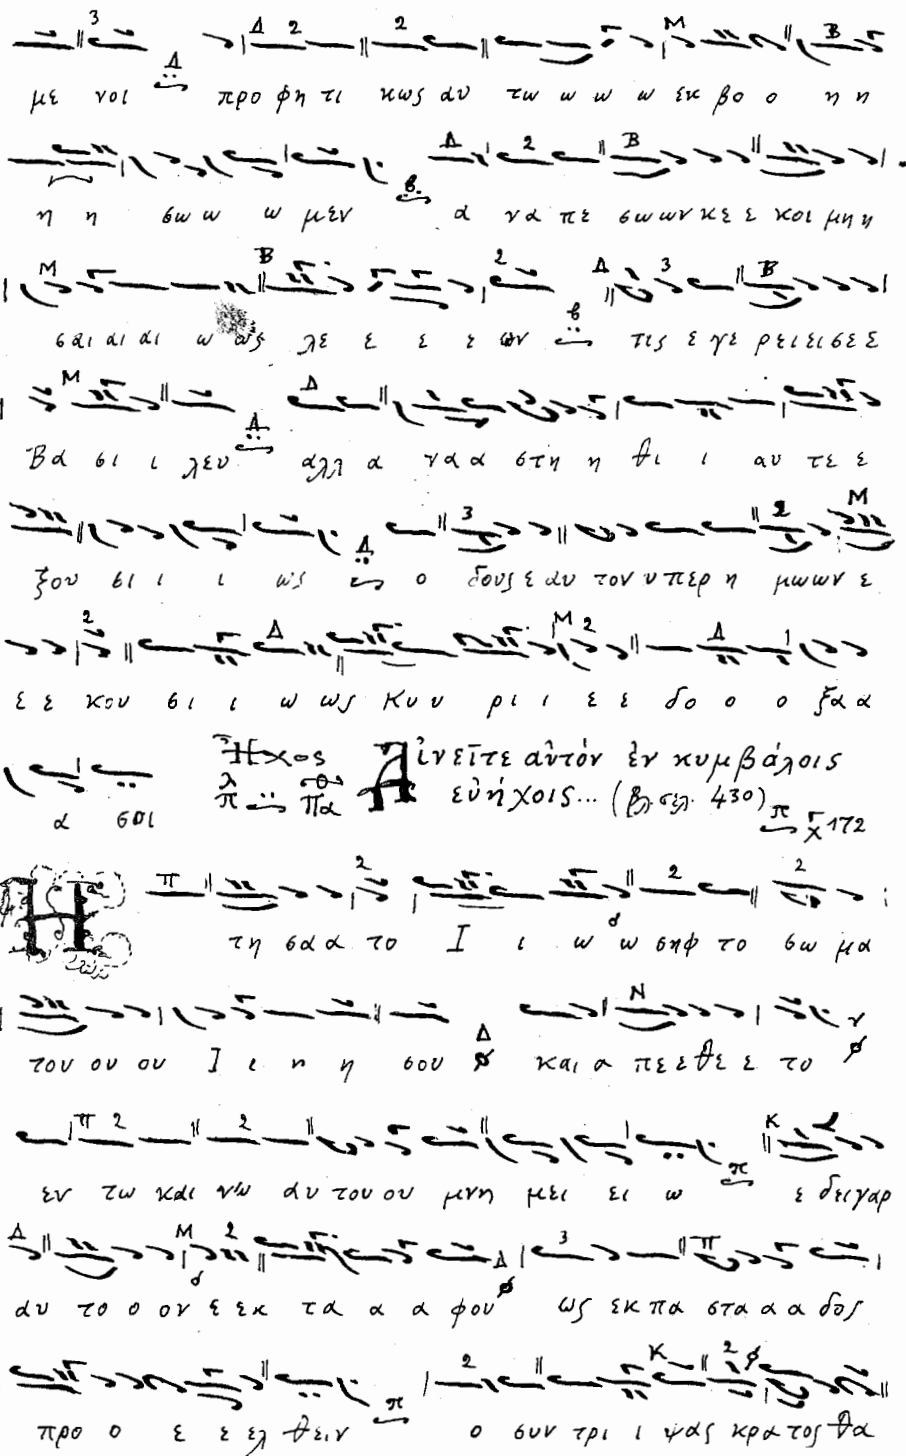 με νοι προ φη τι κως αυ τω ω ω ω εκ βο ο η η
η η σω ω ω μεν α να πε σω ων κε ε κοι μη η
σαι αι αι ω ως λε ε ε ε ων τις ε γε ρει ει σε ε
Βα σι ι λευ αλλ α να α στη η θι ι αυ τε ε
ξου σι ι ι ως ο δους ε αυ τον υ περ η μω ων ε
ε ε κου σι ι ω ως Κυ υ ρι ι ε ε δο ο ο ξα α
α σοι Ἦχος λ π Πα Αἰνεῖτε αὐτόν ἐν κυμβάλοις
εὐήχοις... (βλ. σελ. 430) χ 172
Η τη σα α το Ι ι ω ω σηφ το σω μα
του ου ου Ι ι η η σου και α πε ε θε ε το
εν τω και νω αυ του ου μνη μει ει ω ε δει γαρ
αυ το ο ον ε εκ τα α α φου ως εκ πα στα α α δος
προ ο ε ε ελ θειν ο συν τρι ι ψας κρα τος θα